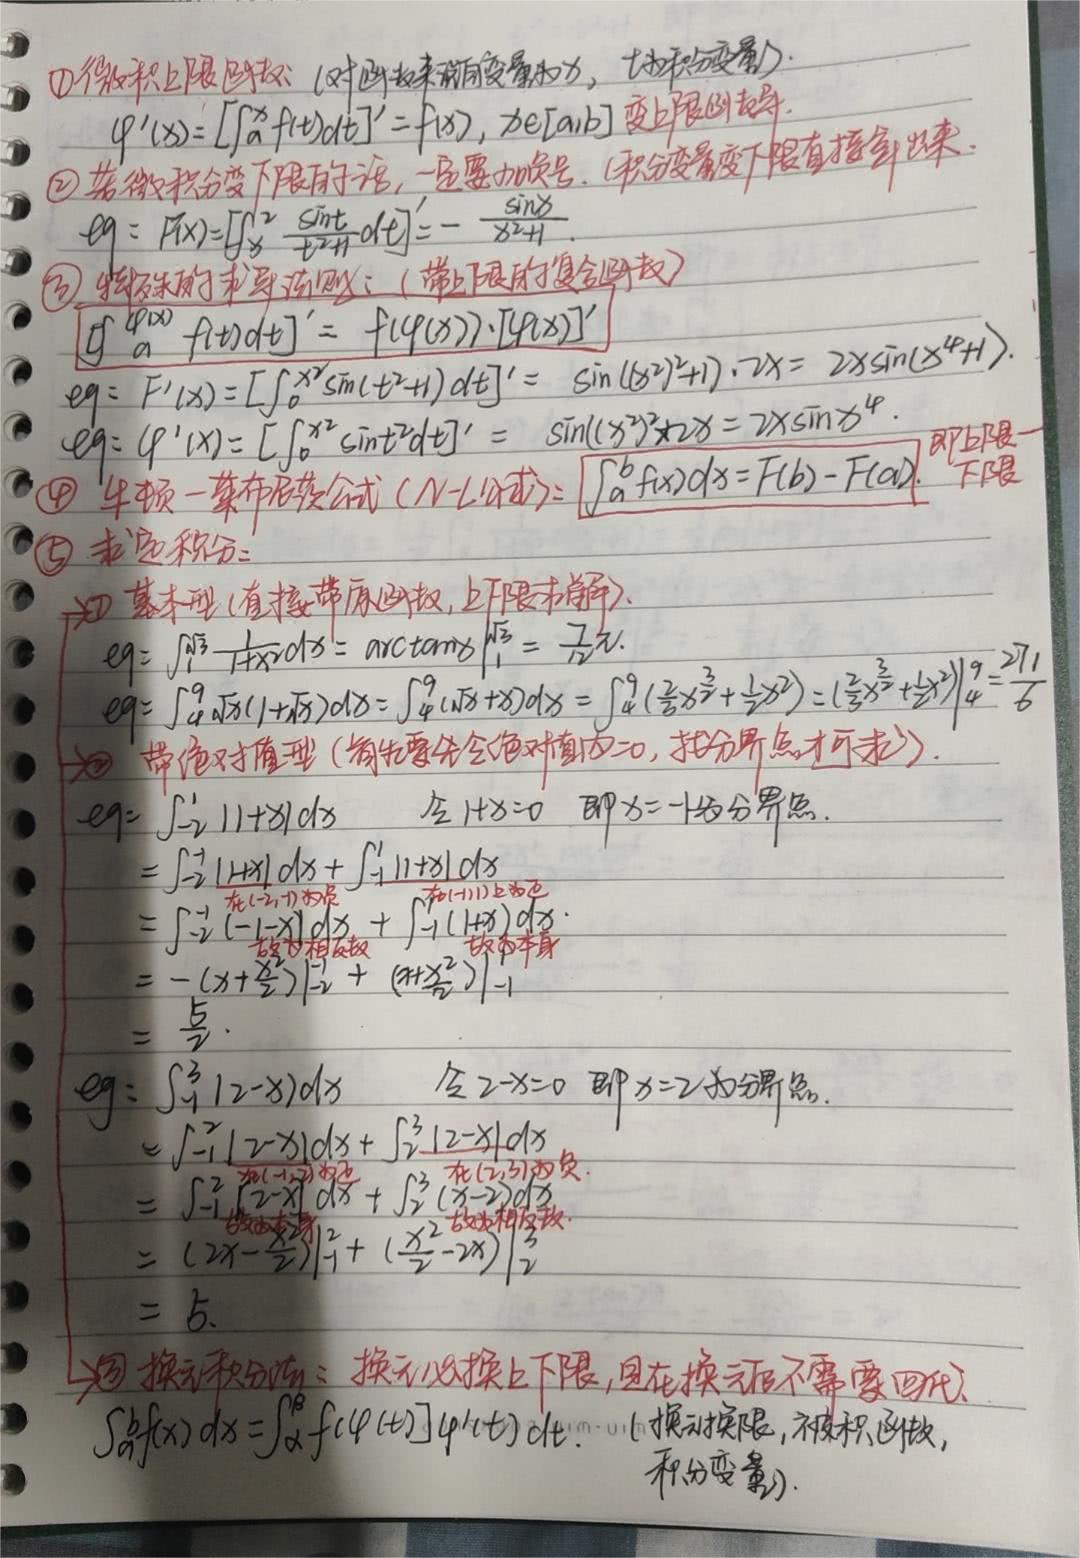 ①微积上限函数:(对函数来说自变量为x,t为积分变量).
φ'(x)=[∫ₐˣf(t)dt]'=f(x),x∈[a,b] 变上限函数导.
②若微积分变下限的话,一定要加负号.(积分变量变下限直接拿出来.
eg: F'(x)=[∫ₓ² sint/(t²+1) dt]'=- sinx/(x²+1).
③特殊的求导法则:(带上限的复合函数)
[∫ₐ^φ(x) f(t)dt]'= f(φ(x))·[φ(x)]'
eg: F'(x)=[∫₀^x² sin(t²+1)dt]'= sin((x²)²+1)·2x= 2xsin(x⁴+1).
eg: φ'(x)=[∫₀^x² sint²dt]'= sin((x²)²×2x=2xsinx⁴.
④牛顿-莱布尼茨公式(N-L公式): ∫ₐᵇf(x)dx=F(b)-F(a). 即上限-下限
⑤求定积分:
①基本型(直接带原函数,上下限求解).
eg: ∫₁^√3 1/(1+x²)dx= arctanx|₁^√3 = 7/12π.
eg: ∫₄⁹√x(1+√x)dx=∫₄⁹(√x+x)dx=∫₄⁹(2/3x^3/2+1/2x²)=(2/3x^3/2+1/2x²)|₄⁹=271/6
②带绝对值型(首先要先令绝对值内=0,找分界点才可求).
eg: ∫₋₂¹|1+x|dx 令1+x=0 即x=-1为分界点.
=∫₋₂⁻¹|1+x|dx+∫₋₁¹|1+x|dx
在(-2,-1)为负 在(-1,1)上为正
=∫₋₂⁻¹(-1-x)dx+∫₋₁¹(1+x)dx.
故为相反数 故为本身
=-(x+x²/2)|₋₂⁻¹+(x+x²/2)|₋₁¹
= 5/2.
eg: ∫₋₁³|2-x)dx 令2-x=0 即x=2为分界点.
=∫₋₁²|2-x|dx+∫₂³|2-x|dx
在(-1,2)为正 在(2,3)为负.
=∫₋₁²[2-x]dx+∫₂³(x-2)dx
故为本身 故为相反数.
=(2x-x²/2)|₋₁²+(x²/2-2x)|₂³
= 5.
③换元积分法:换元必换上下限,且在换元后不需要回代.
∫ₐᵇf(x)dx=∫_α^βf(φ(t)]φ'(t)dt. (换元换限,不被积函数,
积分变量).